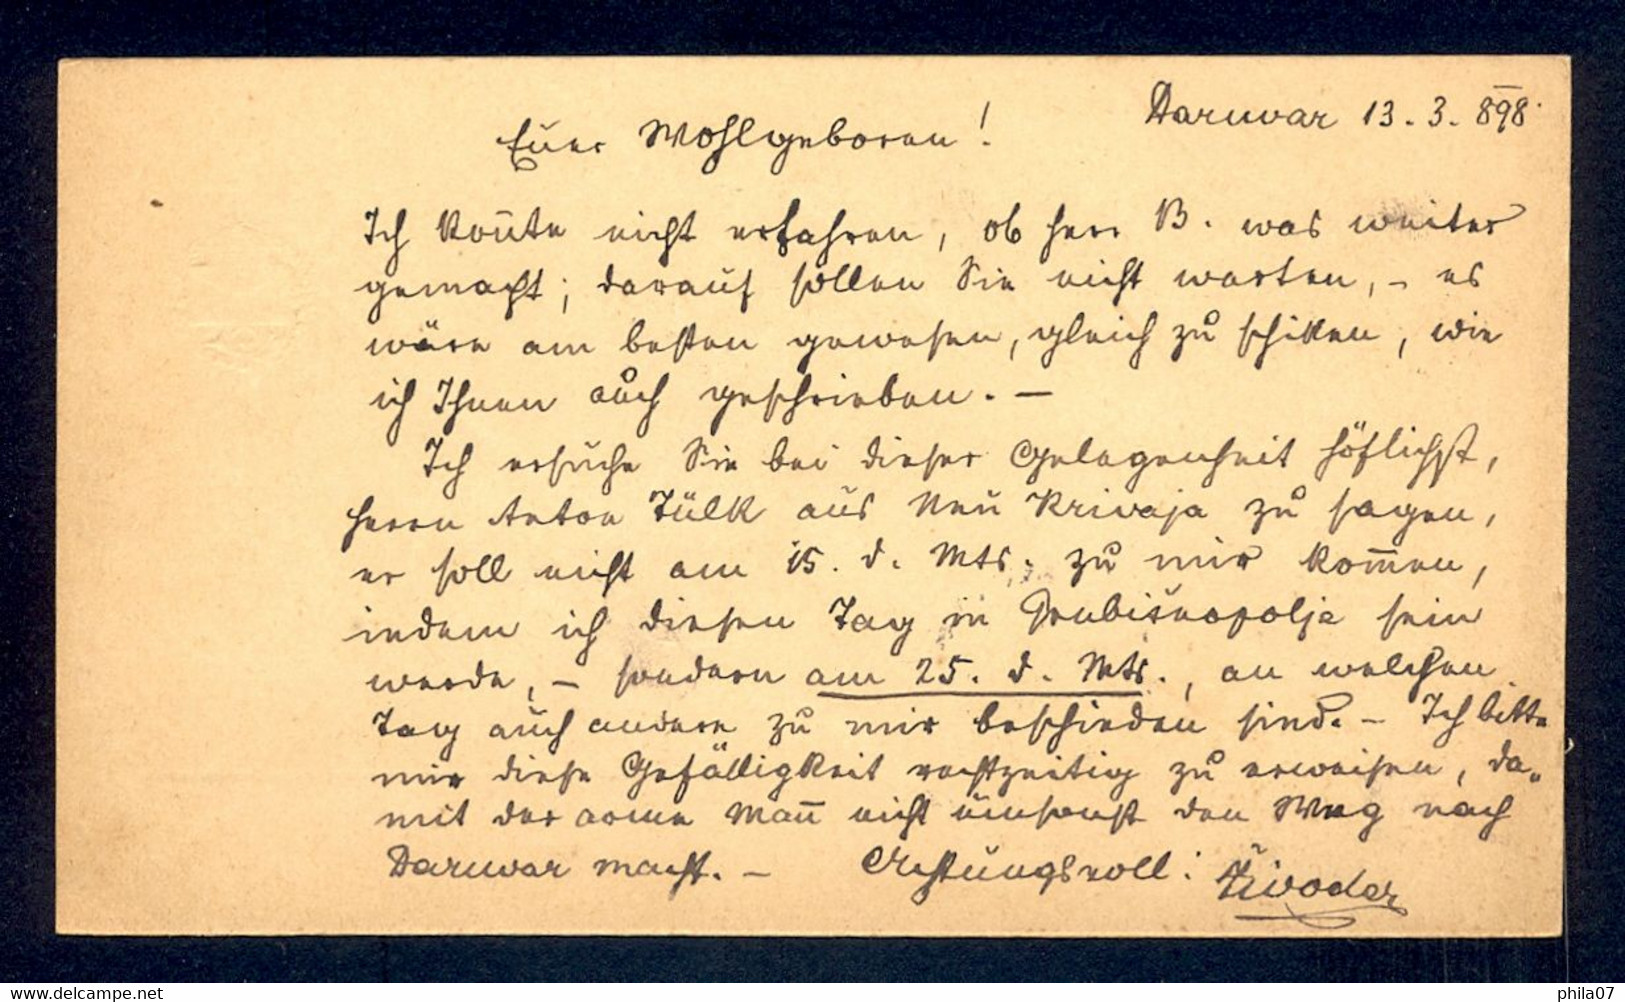 Daruvar 13. 3. 898.
Euer Wohlgeboren!
Ich kon̄te nicht erfahren, ob Herr B. was weiter
gemacht; darauf sollen Sie nicht warten, – es
wäre am besten gewesen, gleich zu schiken, wie
ich Ihnen auch geschrieben. –
Ich ersuche Sie bei dieser Gelegenheit höflichst,
Herrn Anton Tülk aus Neu Krivaja zu sagen,
er soll nicht am 15. d. Mts. zu mir kom̄en,
indem ich diesen Tag in Grubišnopolje sein
werde, – sondern am 25. d. Mts., an welchen
Tag auch andere zu mir beschieden sind. – Ich bitte
mir diese Gefälligkeit rechtzeitig zu erweisen, da„
mit der arme Man̄ nicht umsonst den Weg nach
Daruvar macht. – Achtungsvoll: Živoder
https://www.delcampe.net
phila07